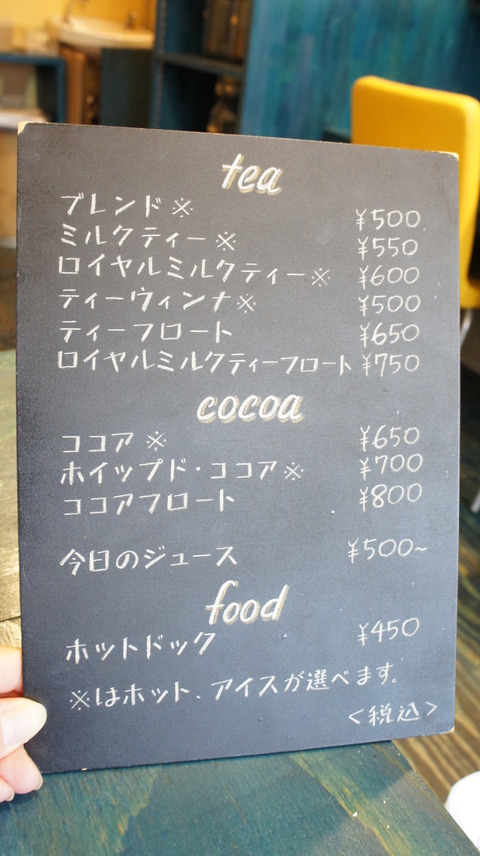 tea
ブレンド※ ¥500
ミルクティー※ ¥550
ロイヤルミルクティー※ ¥600
ティーウィンナ※ ¥500
ティーフロート ¥650
ロイヤルミルクティーフロート ¥750
cocoa
ココア※ ¥650
ホイップド・ココア※ ¥700
ココアフロート ¥800
今日のジュース ¥500~
food
ホットドック ¥450
※はホット、アイスが選べます。
<税込>